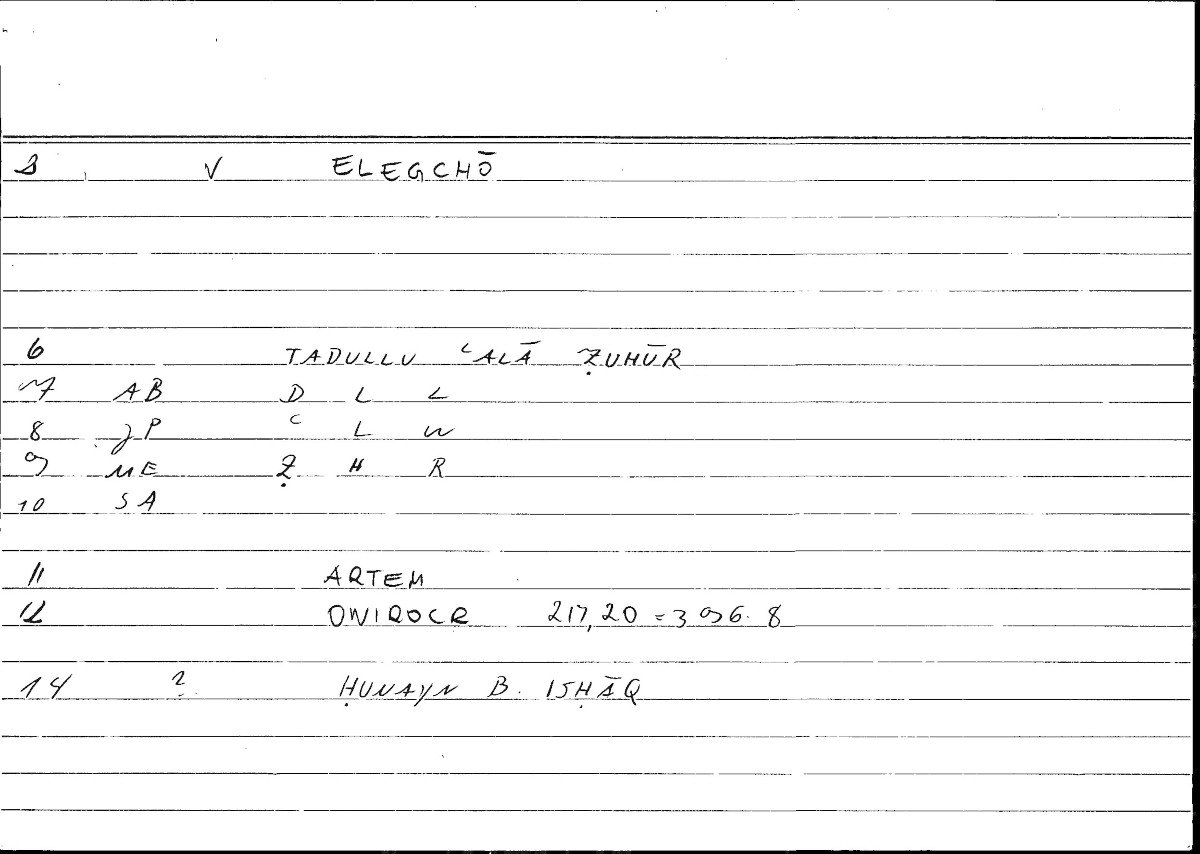 1 V ELEGCHŌ
6 TADULLU ʿALĀ ẒUHŪR
7 AB D L L
8 JP ʿ L W
9 ME Ẓ H R
10 SA
11 ARTEM
12 ONIROCR 217,20 = 396.8
14 ? ḤUNAYN B. ISḤĀQ